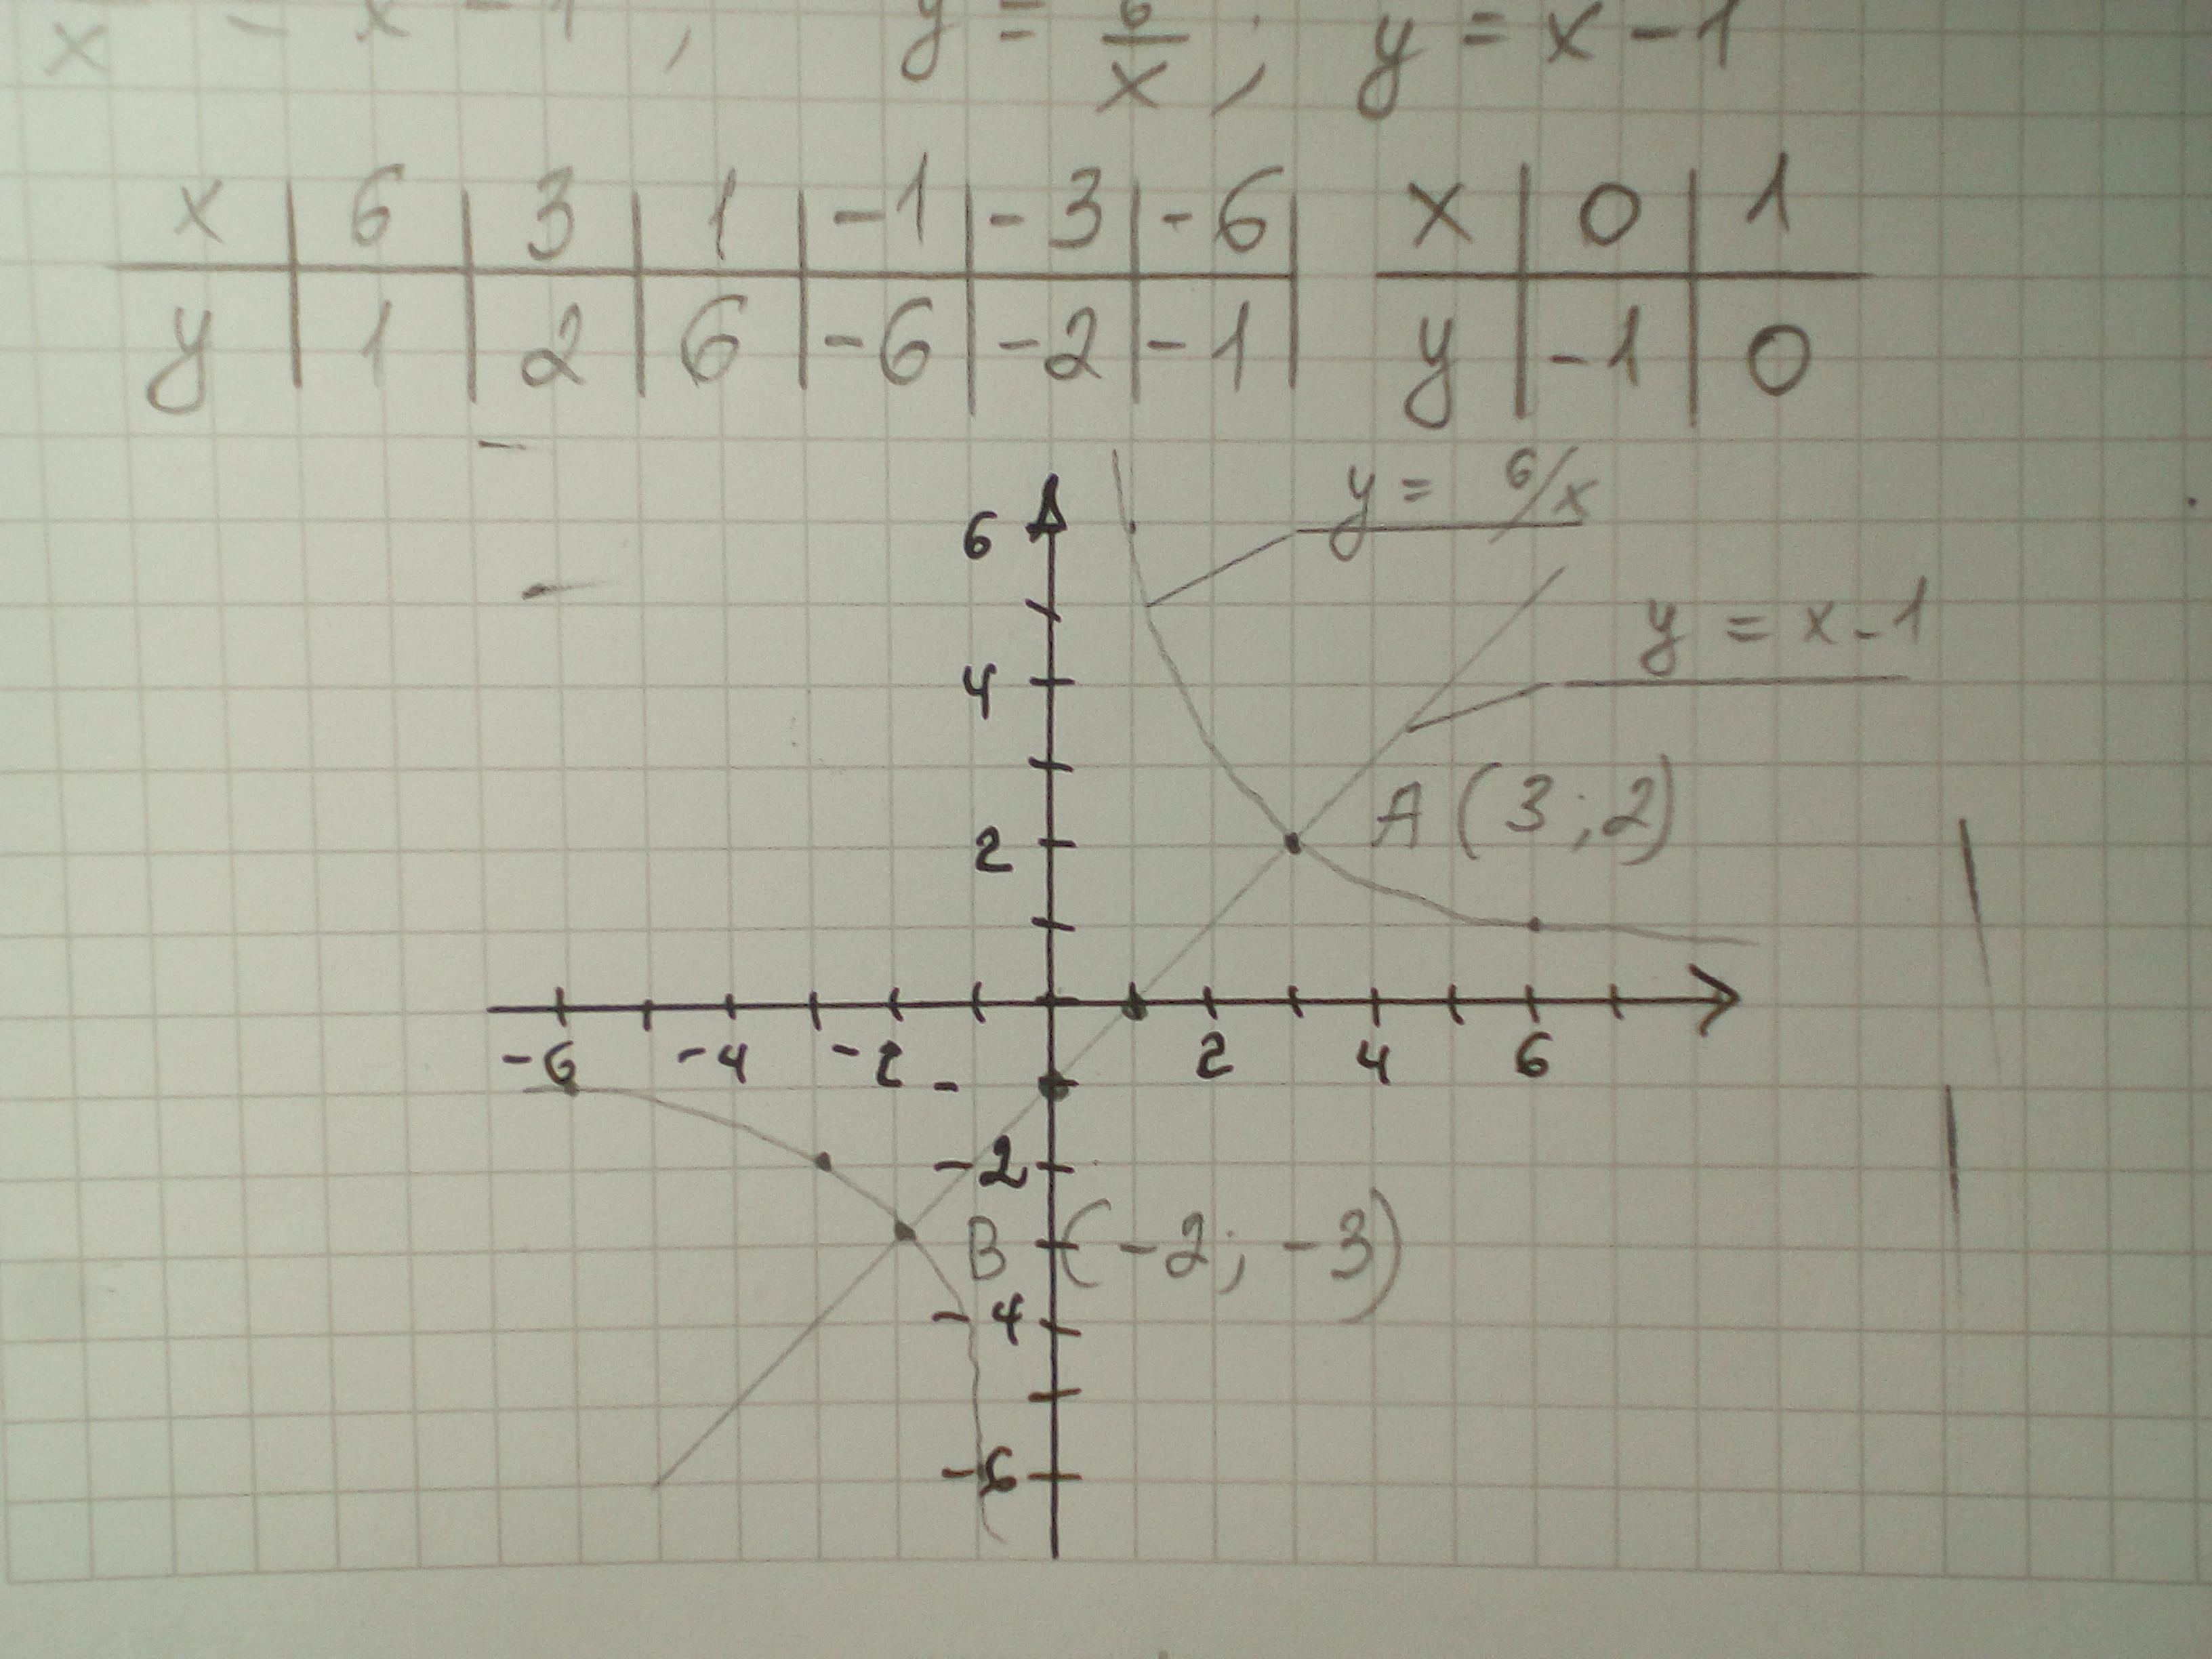 x = x - 1, y = 6/x; y = x - 1
x | 6 | 3 | 1 | -1 | -3 | -6 |
y | 1 | 2 | 6 | -6 | -2 | -1 |
x | 0 | 1
y | -1 | 0
y = 6/x
6
y = x - 1
4
A (3; 2)
2
-6 -4 -2 2 4 6
-
-2
B (-2; -3)
-4
-6